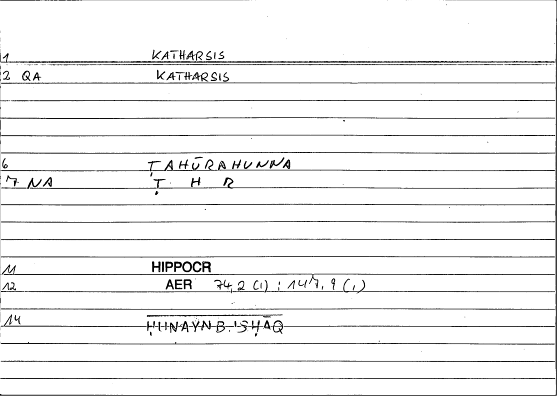 1 KATHARSIS
2 QA KATHARSIS
6 ṬAHŪRAHUNNA
7 NA Ṭ H R
11 HIPPOCR
12 AER 74,2 (1) : 147,9 (1)
14 ḤUNAYN B. 'ISḤĀQ